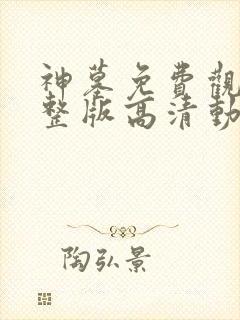 神墓免費觀
整版高清動
陶弘景